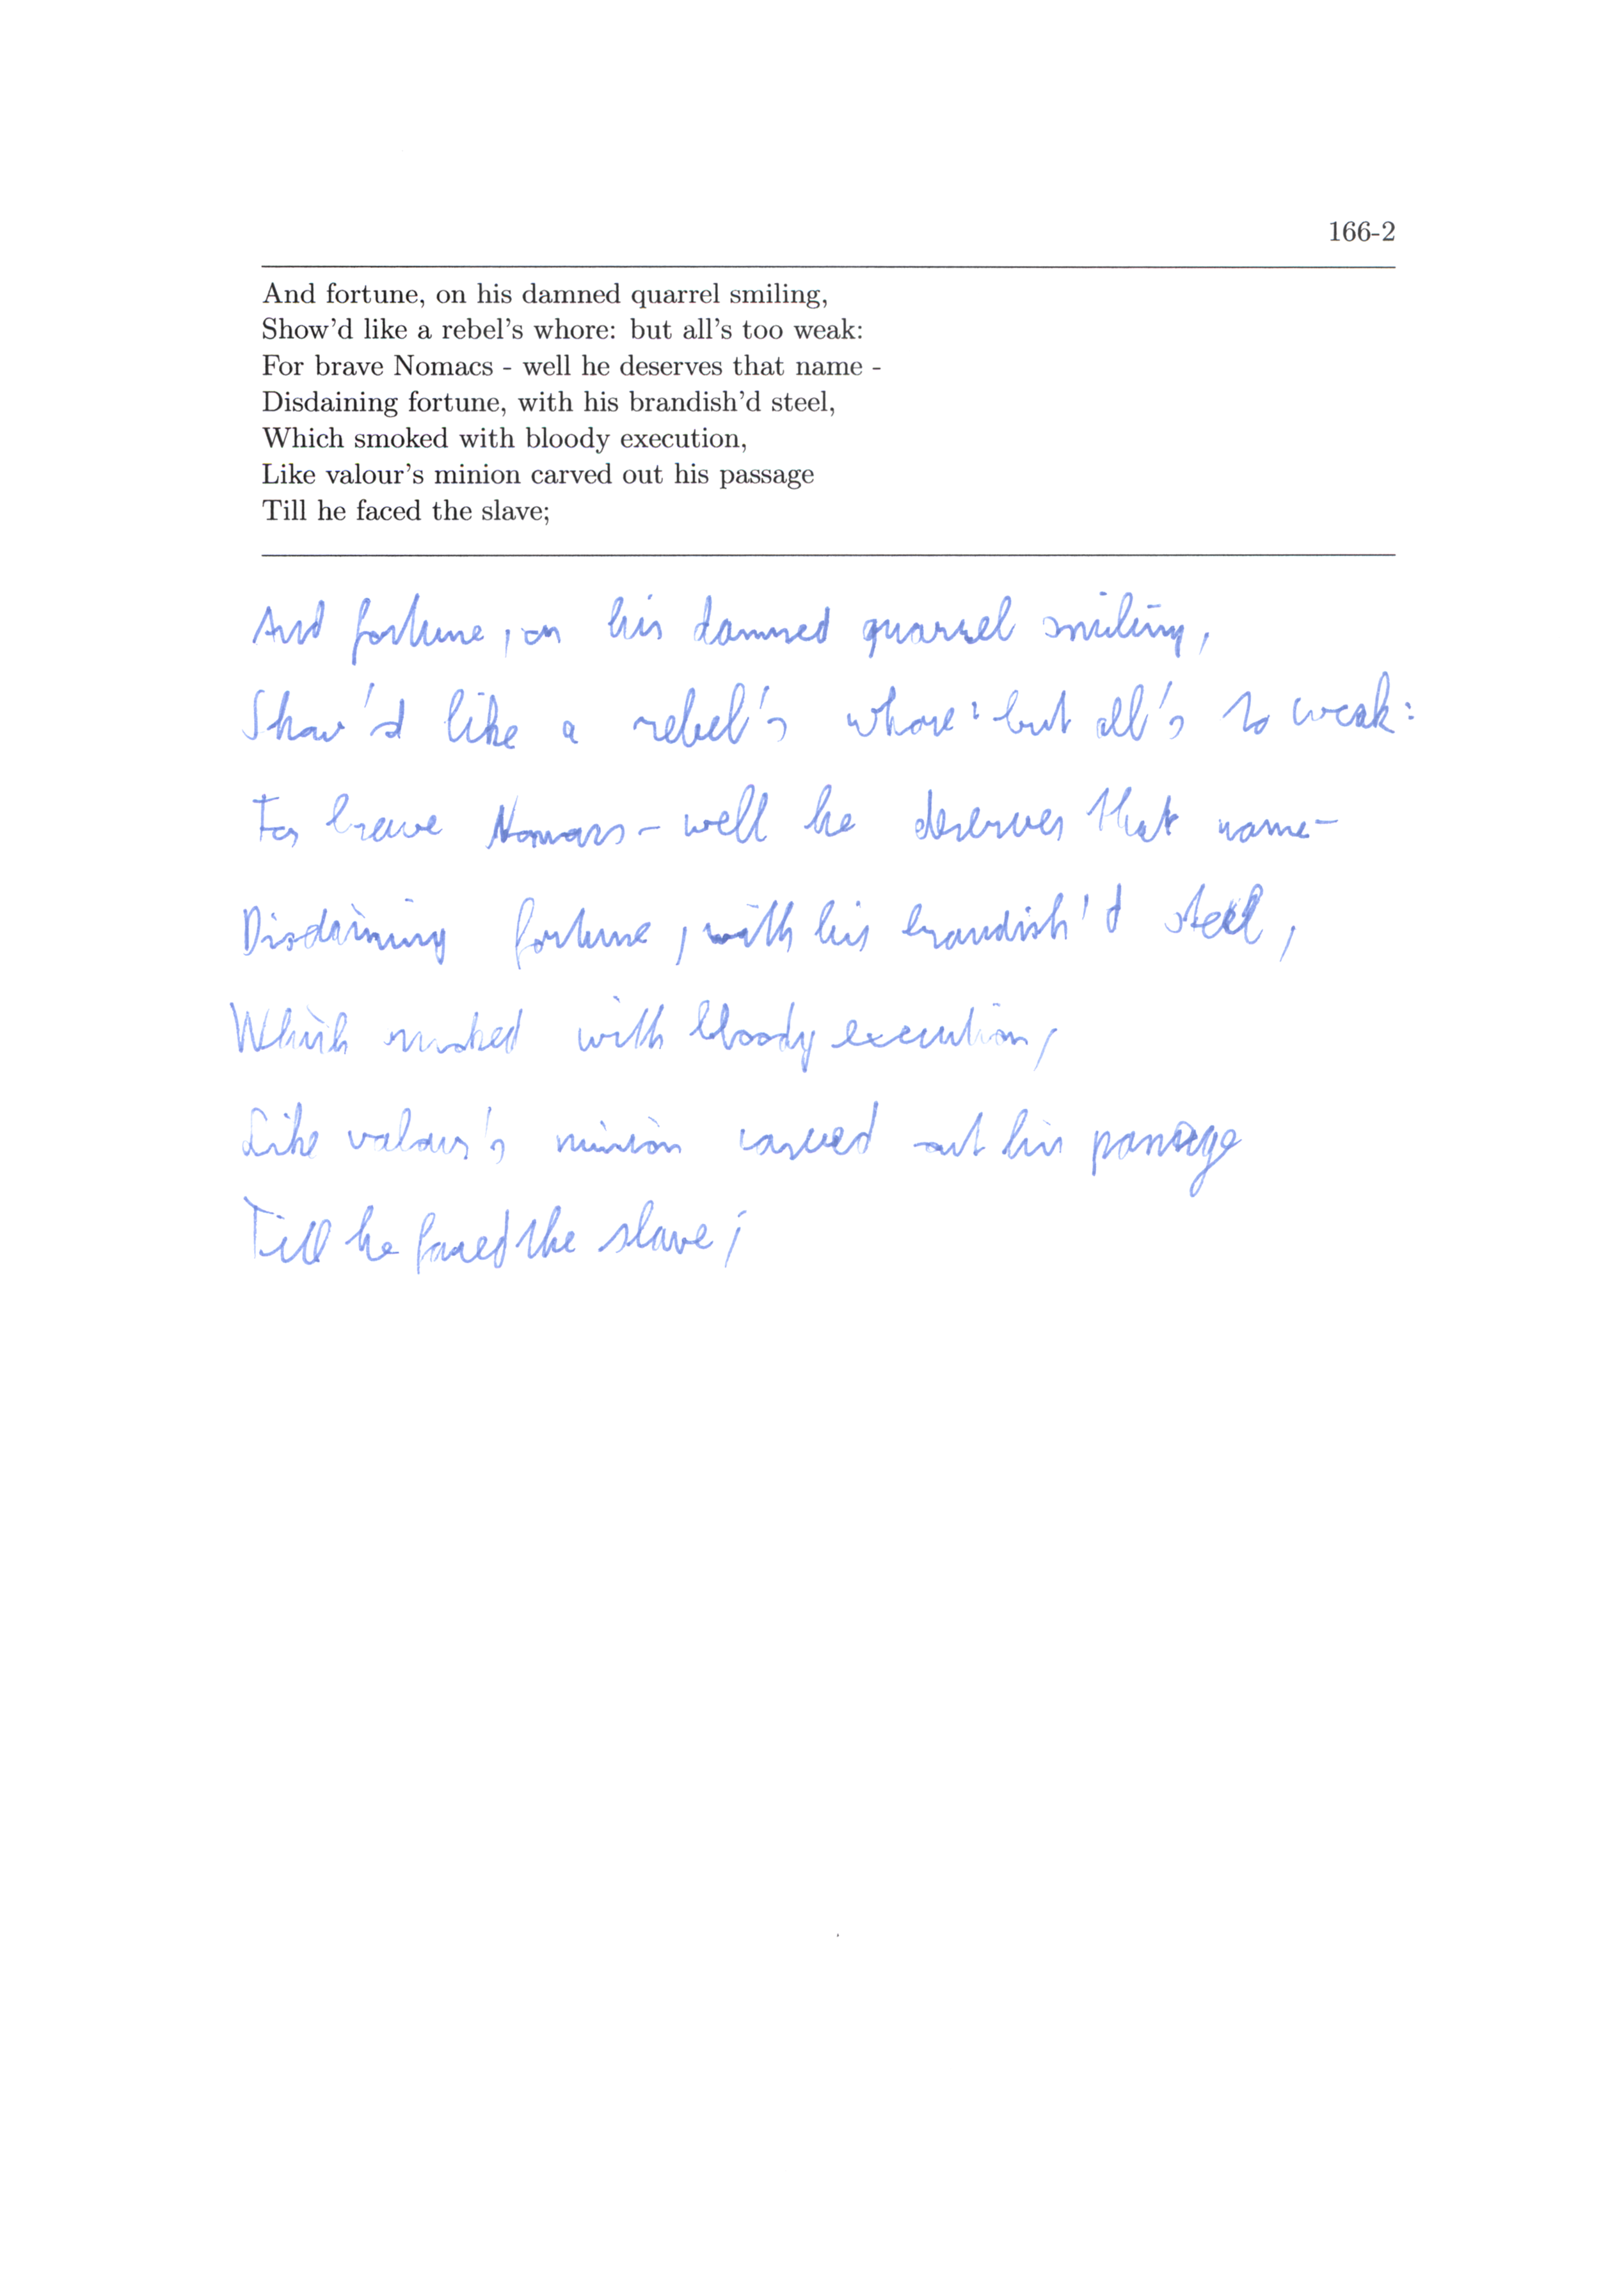 166-2
And fortune, on his damned quarrel smiling,
Show'd like a rebel's whore: but all's too weak:
For brave Nomacs - well he deserves that name -
Disdaining fortune, with his brandish'd steel,
Which smoked with bloody execution,
Like valour's minion carved out his passage
Till he faced the slave;
And fortune, on his damned quarrel smiling,
Show'd like a rebel's whore: but all's to weak:
For brave Nomacs - well he deserves that name -
Disdaining fortune, with his brandish'd steel,
Which smoked with bloody execution,
Like valour's minion carved out his passage
Till he faced the slave;